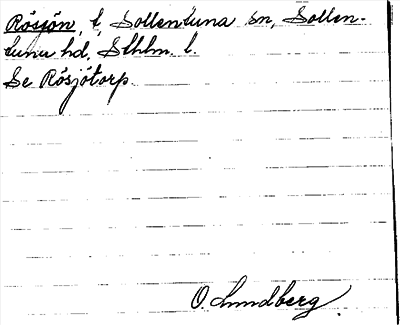 Rösjön, t, Sollentuna sn, Sollen-
tuna hd, Sthlm. l.
Se Rösjötorp.
O. Lundberg.